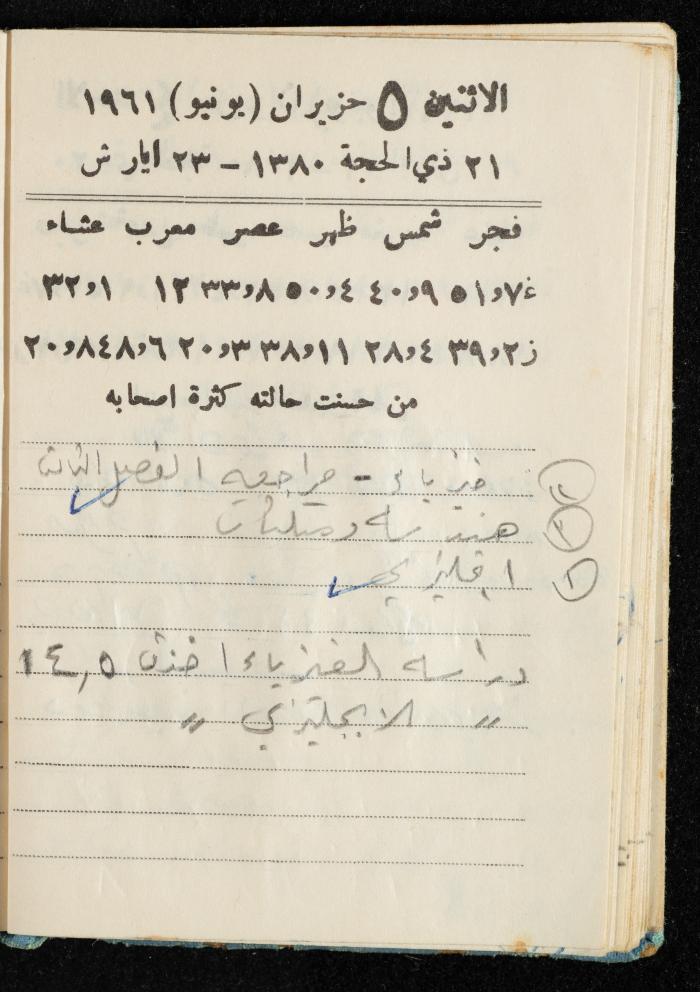 الاثنين ٥ حزيران (يونيو) ١٩٦١
٢١ ذي الحجة ١٣٨٠ – ٢٣ ايار ش
فجر شمس ظهر عصر مغرب عشاء
غ ٧و٥١ ٩و٤٠ ٤و٥٠ ٨و٣٣ ١٢ ١و٣٢
ز ٢و٣٩ ٤و٢٨ ١١و٣٨ ٣و٢٠ ٦و٤٨ ٨و٢٠
من حسنت حالته كثرة اصحابه
فيزياء - مراجعة الفصل الثالث ②
هندسة ومثلثات ③
انجليزي ①
دراسة الفيزياء اخذت ١٤,٥
〃 الانجليزي 〃